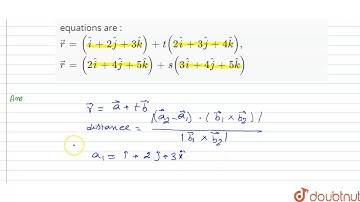 equations are :
r⃗ = (î + 2ĵ + 3k̂) + t(2î + 3ĵ + 4k̂),
r⃗ = (2î + 4ĵ + 5k̂) + s(3î + 4ĵ + 5k̂)
Ans
r⃗ = a⃗ + t b⃗
distance = |(a⃗₂ - a⃗₁) · (b⃗₁ × b⃗₂)| / |b⃗₁ × b⃗₂|
a₁ = î + 2ĵ + 3k̂
doubtnut